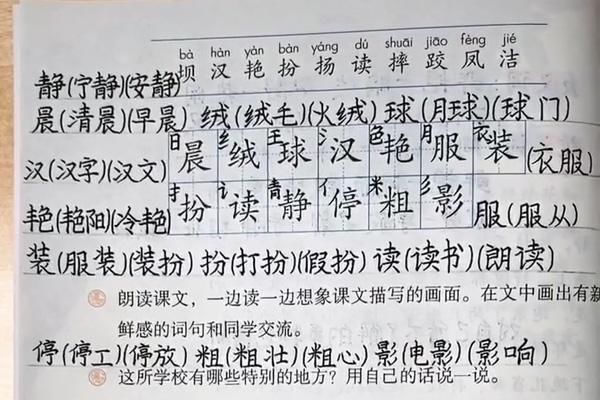 bà hàn yàn bàn yáng dú shuāi jiāo fèng jié
坝 汉 艳 扮 扬 读 摔 跤 凤 洁
静(宁静)(安静)
晨(清晨)(早晨) 绒(绒毛)(火绒) 球(月球)(球门)
日 纟 王 氵 色 月 衣
汉(汉字)(汉文) 晨 绒 球 汉 艳 服 装 (衣服)
扌 讠 青 亻 米 彡
艳(艳阳)(冷艳) 扮 读 静 停 粗 影 服(服从)
装(服装)(装扮) 扮(打扮)(假扮) 读(读书)(朗读)
朗读课文，一边读一边想象课文描写的画面。在文中画出有新
鲜感的词句和同学交流。
停(停工)(停放) 粗(粗壮)(粗心) 影(电影)(影响)
这所学校有哪些特别的地方？用自己的话说一说。